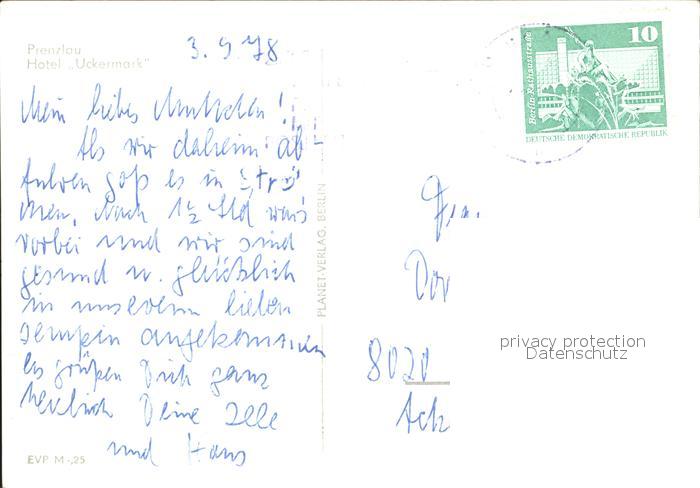 Prenzlau
Hotel „Uckermark"
3. 9. 78
Mein liebes Muttchen!
Als wir daheim ab
fuhren goß es in Strö
men. Nach 1½ Std war's
vorbei und wir sind
gesund u. glücklich
in unserem lieben
Sempin angekommen
Es grüßen Dich ganz
herzlich Deine Ille
und Hans
EVP M -,25
PLANET-VERLAG, BERLIN
10
Berlin-Rathausstraße
DEUTSCHE DEMOKRATISCHE REPUBLIK
Dor
8020
privacy protection
Datenschutz